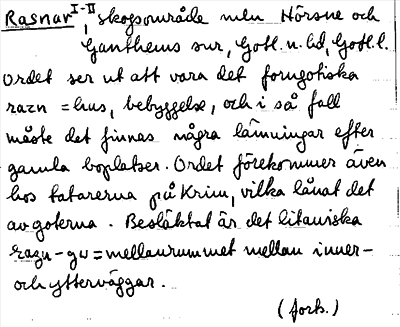 Rasnar I-II, skogsområde mln Hörsne och
Ganthems snr, Gotl. n. hd, Gotl. l.
Ordet ser ut att vara det forngotiska
razn = hus, bebyggelse, och i så fall
måste det finnas några lämningar efter
gamla boplatser. Ordet förekommer även
hos tatarerna på Krim, vilka lånat det
av goterna. Besläktat är det litauiska
razn-gu = mellanrummet mellan inner-
och ytterväggar.
(forts.)